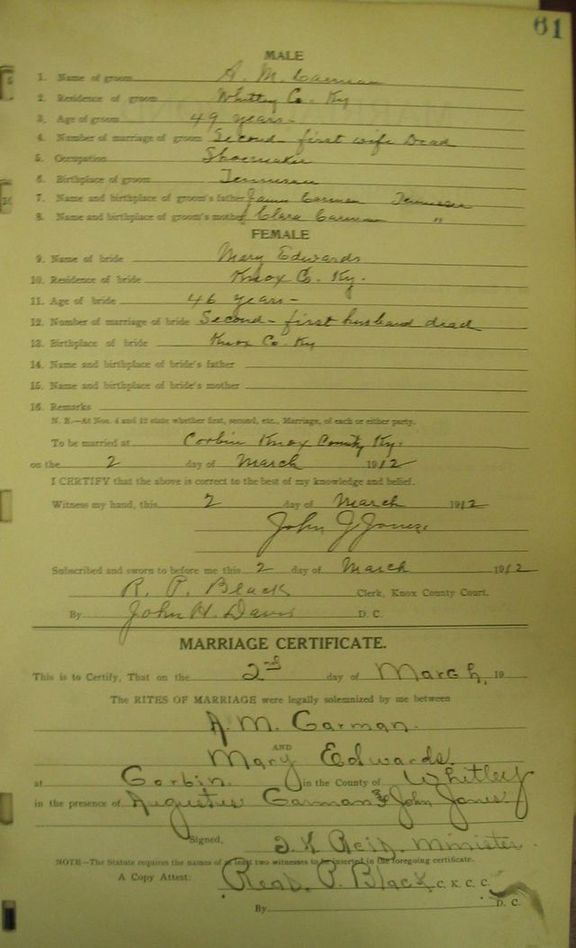 61
MALE
1. Name of groom A. M. Carman
2. Residence of groom Whitley Co. Ky
3. Age of groom 49 years -
4. Number of marriage of groom Second - first wife Dead
5. Occupation Shoemaker
6. Birthplace of groom Tennessee
7. Name and birthplace of groom's father James Carman Tennessee
8. Name and birthplace of groom's mother Clara Carman "
FEMALE
9. Name of bride Mary Edwards
10. Residence of bride Knox Co. Ky.
11. Age of bride 46 years -
12. Number of marriage of bride Second - first husband dead
13. Birthplace of bride Knox Co. Ky
14. Name and birthplace of bride's father
15. Name and birthplace of bride's mother
16. Remarks
N. B.—At Nos. 4 and 12 state whether first, second, etc., Marriage, of each or either party.
To be married at Corbin Knox County Ky.
on the 2 day of March 1912
I CERTIFY that the above is correct to the best of my knowledge and belief.
Witness my hand, this 2 day of March 1912
John J Jones.
Subscribed and sworn to before me this 2 day of March 1912
R. P. Black Clerk, Knox County Court.
By John H. Davis D. C.
MARRIAGE CERTIFICATE.
This is to Certify, That on the 2nd day of March, 19
The RITES OF MARRIAGE were legally solemnized by me between
A. M. Carman.
AND
Mary Edwards.
at Corbin. in the County of Whitley
in the presence of Augustus Carman & John Jones
Signed, Reid. Minister.
NOTE—The Statute requires the names of at least two witnesses to be inserted in the foregoing certificate.
A Copy Attest: Read. P. Black C. K. C. C.
By D. C.